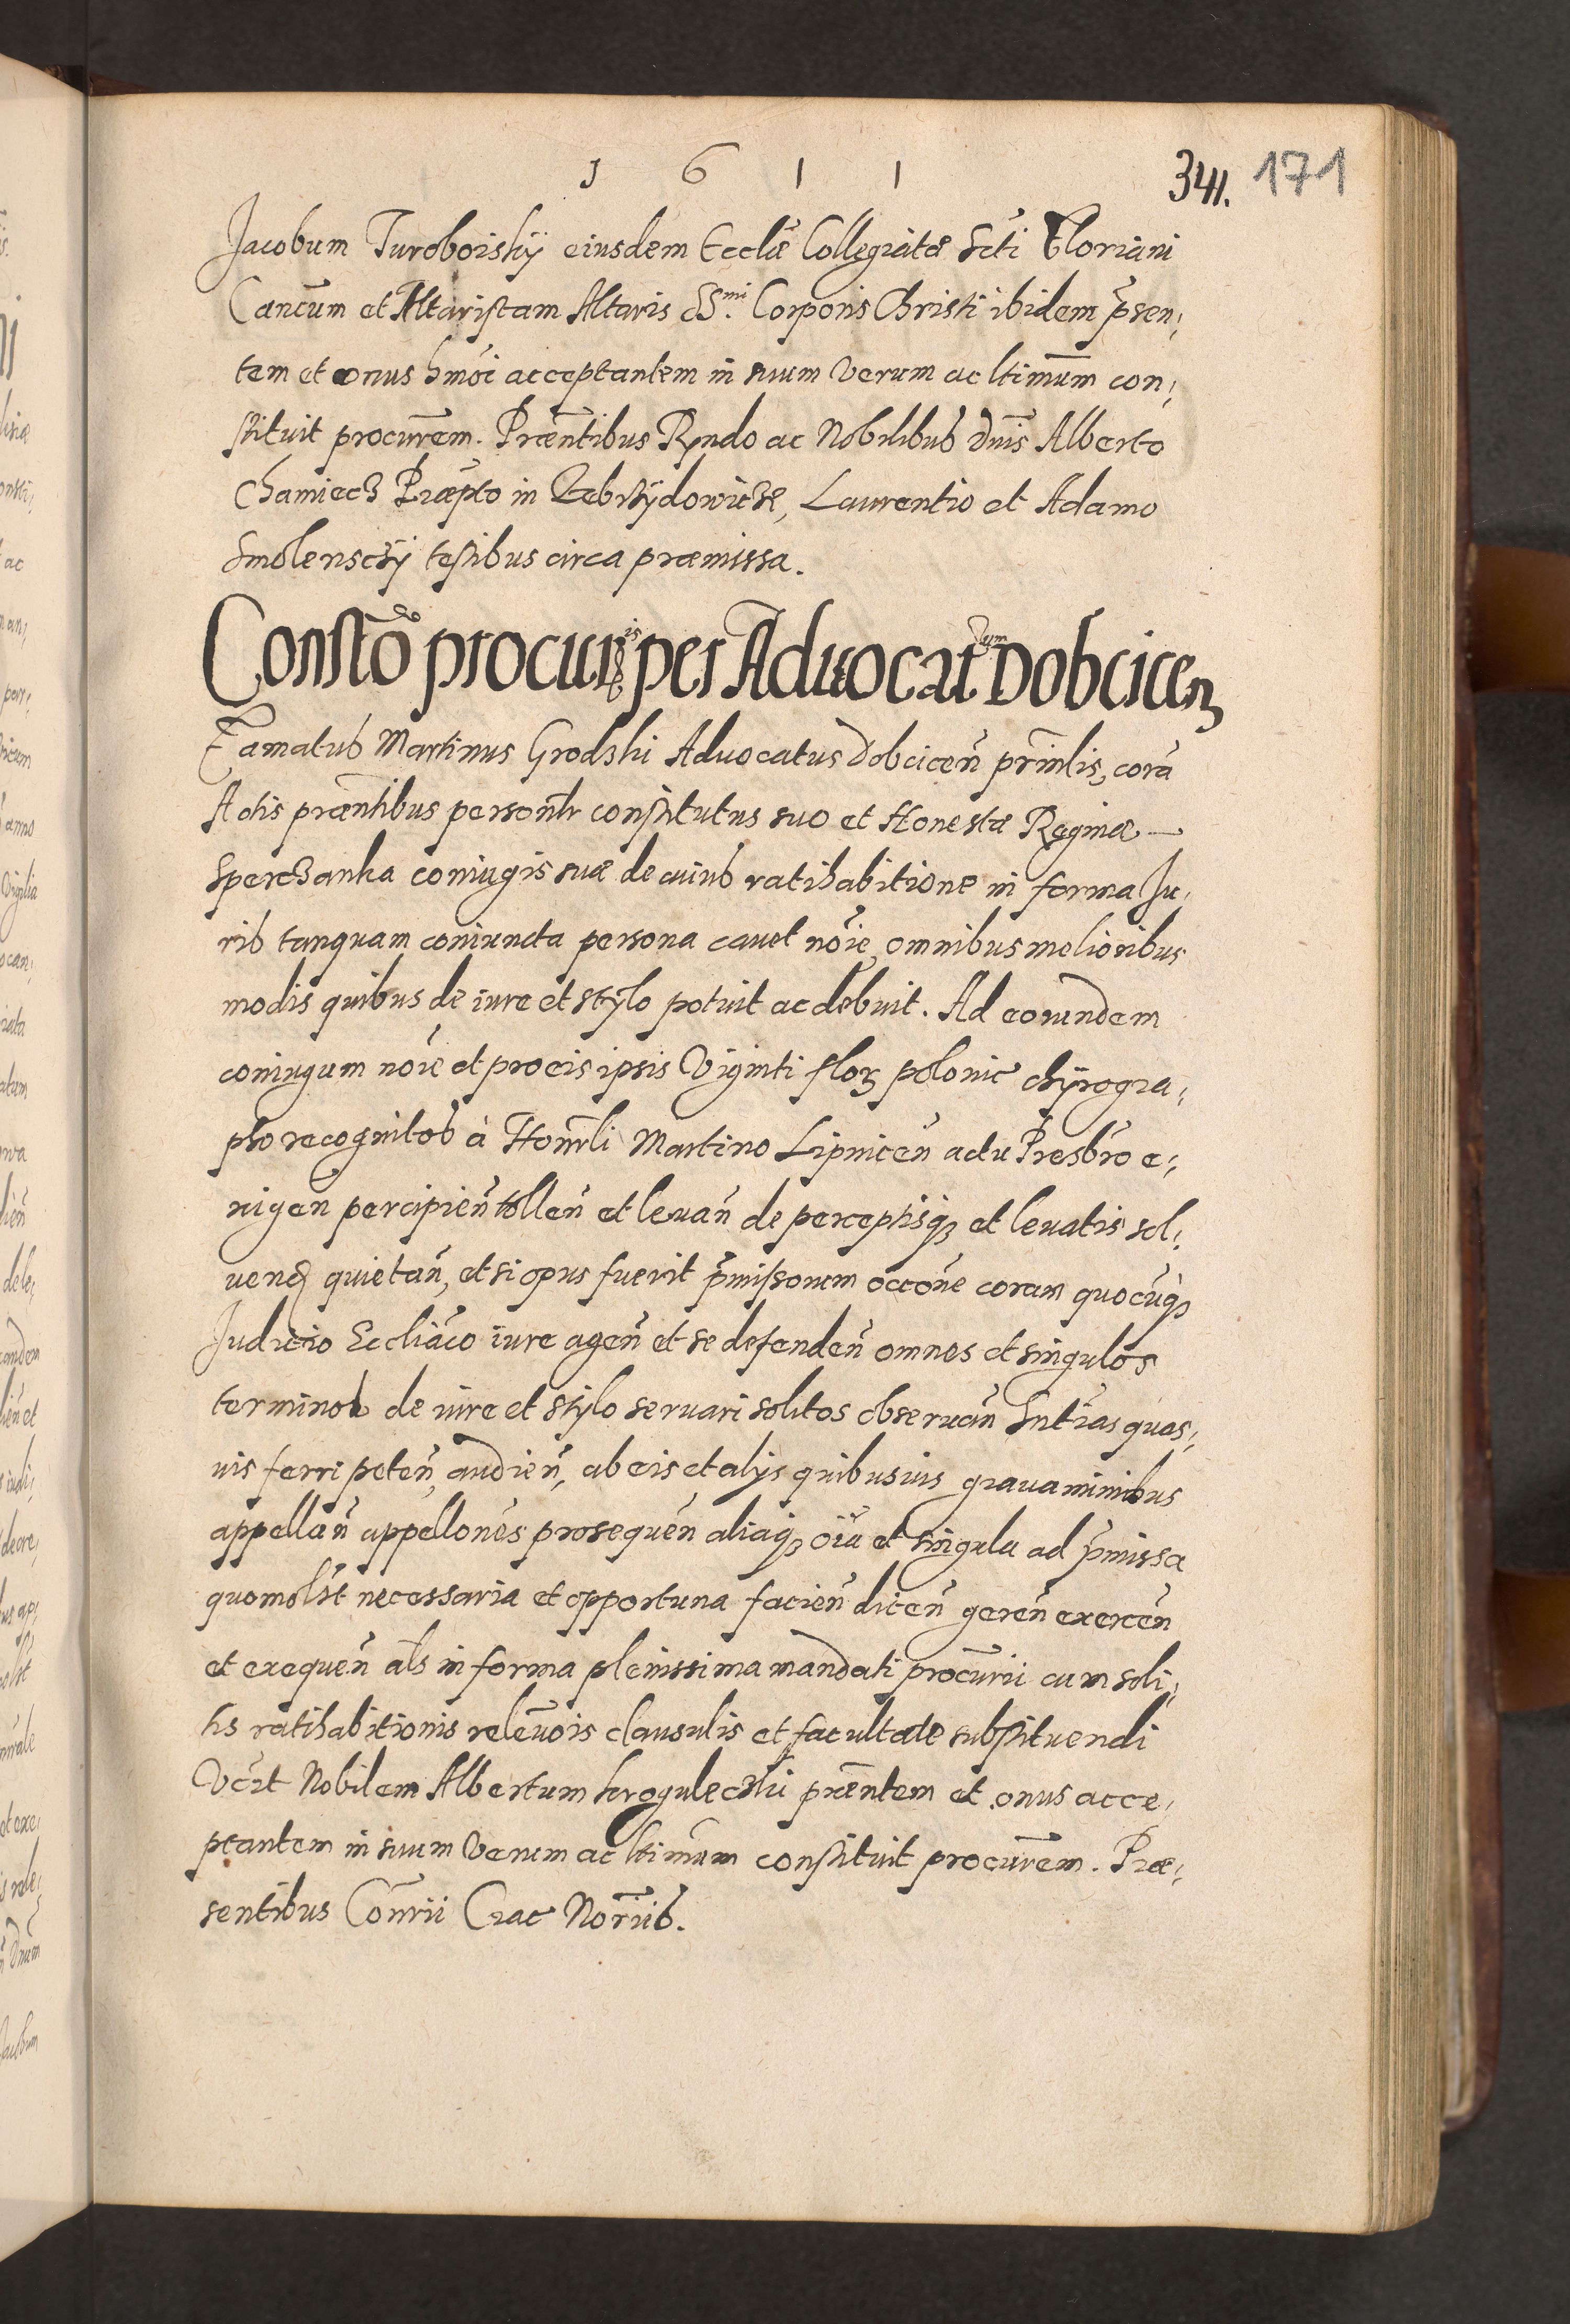 1 6 1 1
341. 171
Jacobum Turoboiskÿ eiusdem Ecclæ Collegiatæ Scti Floriani
Cancum et Altaristam Altaris SSmi. Corporis Christi ibidem pñsen,
tem et onus hmõi acceptantem in suum verum ac ltimum con,
stituit procurem. Præntibus Rndo ac Nobilibus dnis Alberto
Chamiecz Præpto in Zebrzÿdowicze, Laurentio et Adamo
Smolenscÿ testibus circa præmissa.
Constõ procuris per Aduocatum Dobcicen
Famatus Martinus Grodzki Aduocatus Dobcicen prinlis, corã
Actis præntibus personlr constitutus suo et Honestæ Reginæ
Sperczanka coniugis suæ de cuius ratihabitione in forma Ju,
ris tanquam coniuncta persona cauet nõie, omnibus melioribus
modis quibus de iure et stÿlo potuit ac debuit. Ad eorundem
coniugum nõie et pro eis ipsis Viginti florz polonic chÿrogra,
pho recognitos à Honrli Martino Lipnicen actu Presbro e,
xigen percipien tollen et leuan de perceptisq et leuatis sol,
uend quietan, et si opus fuerit pmissorum occone coram quocuq
Judicio Eccliaco iure agen et se defenden omnes et singulos
terminos de iure et stÿlo seruari solitos obseruan Sntias quas,
uis ferri peten, audien, ab eis et alÿs quibusuis grauaminibus
appellan appellones prosequen aliaq oia et singula ad pmissa
quomolbt necessaria et opportuna facien dicen geren exercen
et exequen als in forma plenissima mandati procurii cum soli,
tis ratihabitionis releuois clausulis et facultate substituendi
Vczt Nobilem Albertum præntem et onus acce,
ptantem in suum verum ac ltimum constituit procurem. Præ,
sentibus Connrii Crac Noriis.